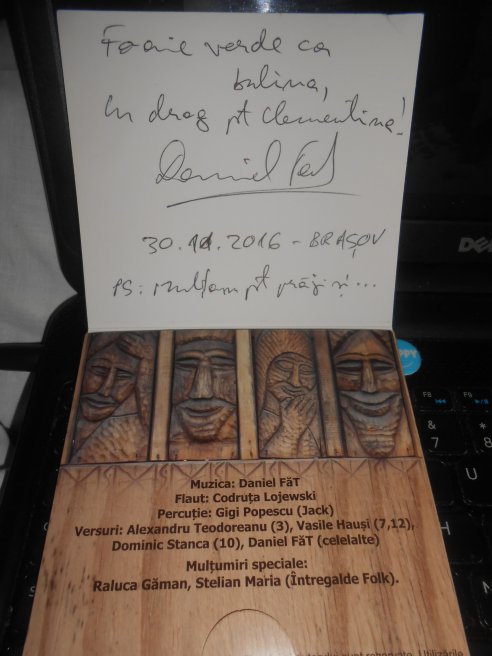 Foaie verde ca
bulina,
cu drag pt Clementina!
Daniel Făt
30.11.2016 - BRAȘOV
PS: pt și ...
DELL
HAPPY
F8
F9
&
7
*
8
U
Muzica: Daniel FăT
Flaut: Codruța Lojewski
Percuție: Gigi Popescu (Jack)
Versuri: Alexandru Teodoreanu (3), Vasile Hauși (7,12),
Dominic Stanca (10), Daniel FăT (celelalte)
Mulțumiri speciale:
Raluca Găman, Stelian Maria (Întregalde Folk).
sunt rezervate. Utilizările